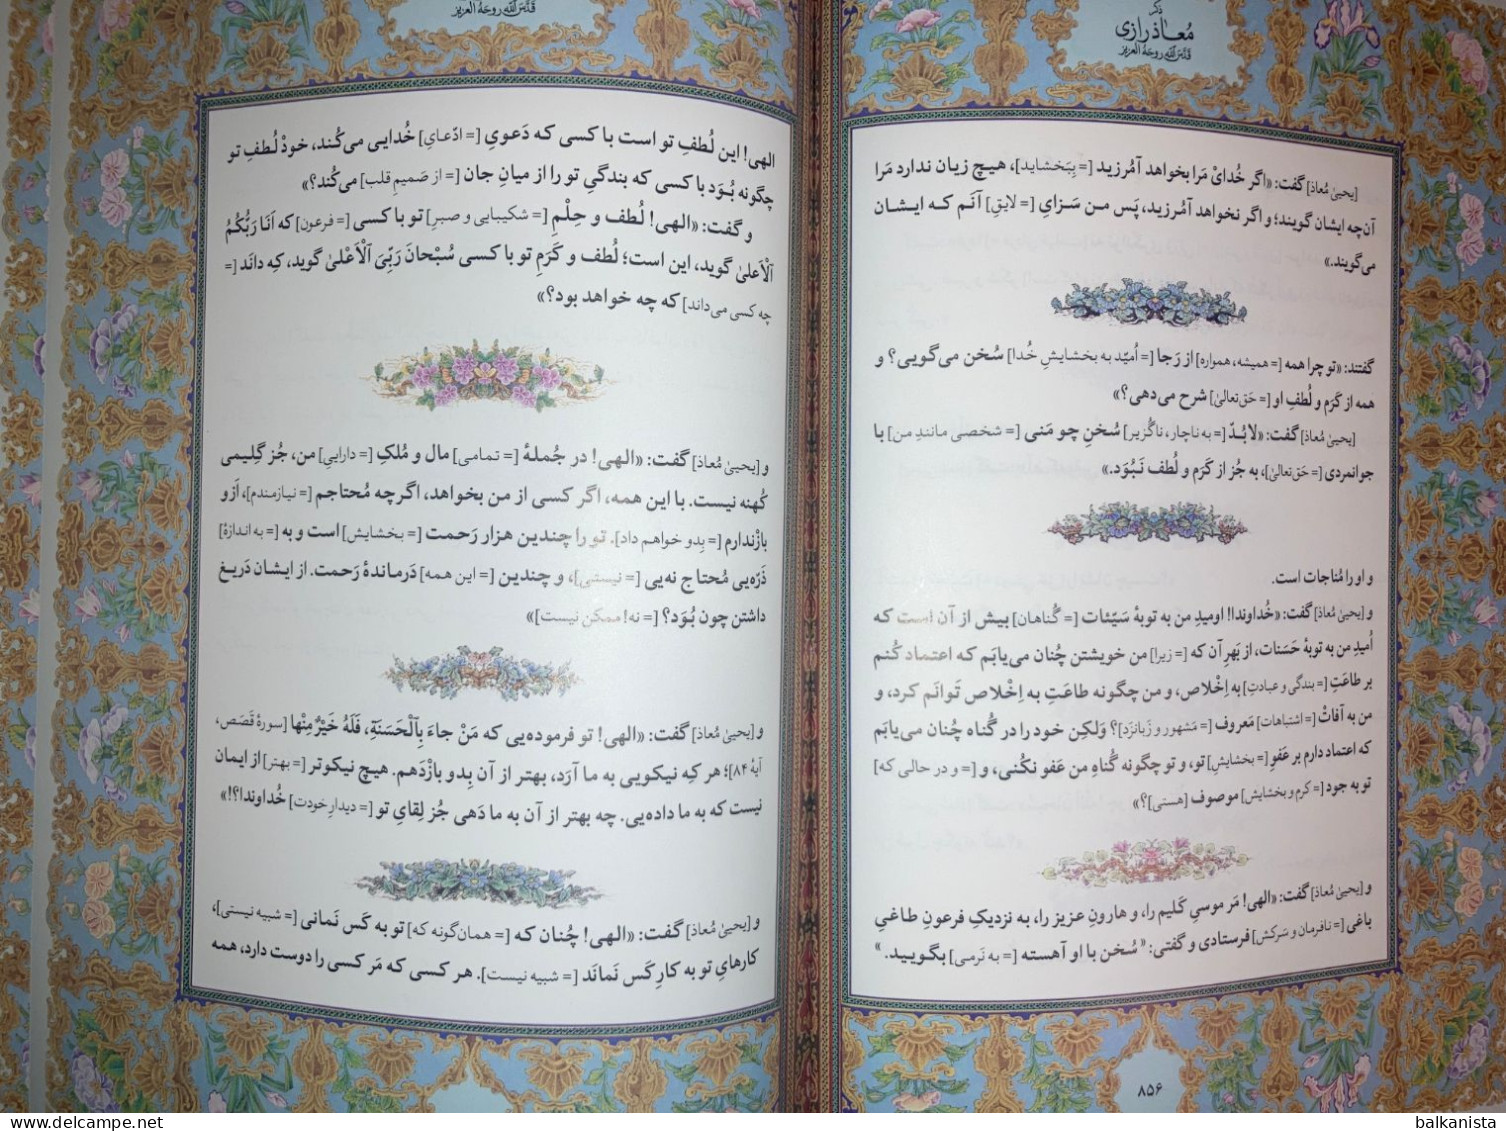 ذکر
مُعاذ رازی
قَدَّسَ اللّه روحَهُ العزیز
[یحییٰ مُعاذ] گفت: «اگر خُدایْ مَرا بخواهد آمُرزید [= بِبَخشاید]، هیچ زیان ندارد مَرا
آن‌چه ایشان گویند؛ و اگر نخواهد آمُرزید، پَس من سَزایِ [= لایقِ] آنَم که ایشان
می‌گویند.»
گفتند: «تو چرا همه [= همیشه، همواره] از رَجا [= اُمیّد به بخشایشِ خُدا] سُخن می‌گویی؟ و
همه از کَرَم و لُطفِ او [= حَق تعالیٰ] شرح می‌دهی؟»
[یحییٰ مُعاذ] گفت: «لابُدّ [= به ناچار، ناگُزیر] سُخنِ چو مَنی [= شخصی مانندِ من] با
جوانمردی [= حَق تعالیٰ]، به جُز از کَرَم و لُطف نَبُوَد.»
و او را مُناجات است.
و [یحییٰ مُعاذ] گفت: «خُداوندا! اومیدِ من به توبهٔ سَیّئات [= گُناهان] بیش از آن است که
اُمیدِ من به توبهٔ حَسَنات، از بَهرِ آن که [= زیرا] من خویشتن چُنان می‌یابَم که اعتماد کُنم
بر طاعَتِ [= بندگی و عبادتِ] به اِخْلاص، و من چگونه طاعَتِ به اِخْلاص تَوانَم کرد، و
من به آفاتْ [= اشتباهات] مَعروف [= مَشهور و زَبانزَد]؟ وَلکِن خود را در گُناه چُنان می‌یابَم
که اعتماد دارم بر عَفوِ [= بخشایشِ] تو، و تو چگونه گُناهِ من عَفو نکُنی، و [= و در حالی که]
تو به جود [= کرم و بخشایش] موصوف [هستی]؟»
و [یحییٰ مُعاذ] گفت: «الهی! مَر موسیِ کَلیم را، و هارونِ عزیز را، به نزدیکِ فرعونِ طاغیِ
باغی [= نافرمان و سَرکش] فرستادی و گفتی: “سُخن با او آهسته [= به نَرمی] بگویید.”
۸۵۶
قَدَّسَ اللّه روحَهُ العزیز
الهی! این لُطفِ تو است با کسی که دَعویِ [= ادّعایِ] خُدایی می‌کُند، خودْ لُطفِ تو
چگونه بُوَد با کسی که بندگیِ تو را از میانِ جان [= از صَمیمِ قلب] می‌کُند؟»
و گفت: «الهی! لُطف و حِلْمِ [= شکیبایی و صبرِ] تو با کسی [= فرعون] که اَنَا رَبُّکُمُ
اَلْاَعلیٰ گوید، این است؛ لُطف و کَرَمِ تو با کسی سُبْحانَ رَبِّیَ اَلْاَعْلیٰ گوید، کِه دانَد [=
چه کسی می‌داند] که چه خواهد بود؟»
و [یحییٰ مُعاذ] گفت: «الهی! در جُملهٔ [= تمامی] مال و مُلکِ [= داراییِ] من، جُز گِلیمی
کُهنه نیست. با این همه، اگر کسی از من بخواهد، اگرچه مُحتاجم [= نیازمندم]، اَزو
بازْندارم [= بِدو خواهم داد]. تو را چندین هزار رَحمت [= بخشایش] است و به [= به اندازهٔ]
ذَرّه‌یی مُحتاج نه‌یی [= نیستی]، و چندین [= این همه] دَرماندهٔ رَحمت. از ایشان دَریغ
داشتن چون بُوَد؟ [= نه! ممکن نیست]»
و [یحییٰ مُعاذ] گفت: «الهی! تو فرموده‌یی که مَنْ جاءَ بِالْحَسَنَةِ، فَلَهُ خَیْرٌ مِنْها [سورهٔ قَصَص،
آیهٔ ۸۴]؛ هر که نیکویی به ما آرَد، بهتر از آن بِدو بازْدَهم. هیچ نیکوتر [= بهتر] از ایمان
نیست که به ما داده‌یی. چه بهتر از آن به ما دَهی جُز لِقایِ تو [= دیدارِ خودت] خُداوندا؟!»
و [یحییٰ مُعاذ] گفت: «الهی! چُنان که [= همان‌گونه که] تو به کَس نَمانی [= شبیه نیستی]،
کارهایِ تو به کارِ کَس نَمانَد [= شبیه نیست]. هر کسی که مَر کسی را دوست دارد، همه
balkanista